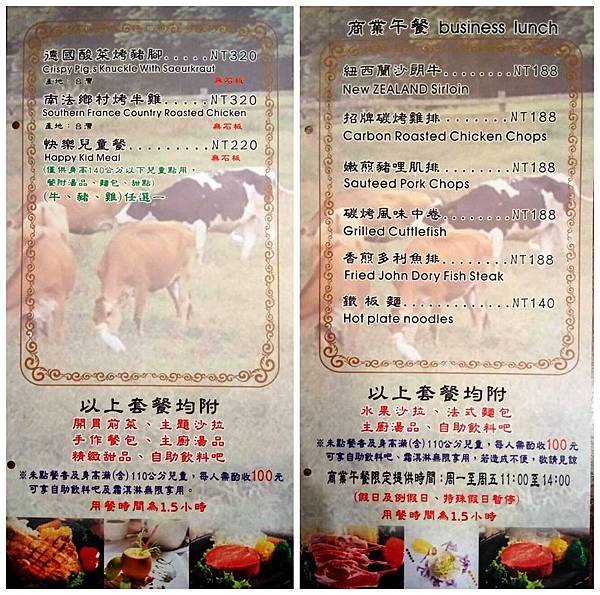 德國酸菜烤豬腳.....NT320
Crispy Pig,s Knuckle With Saeurkraut
產地：台灣 無石板
南法鄉村烤半雞.....NT320
Southern France Country Roasted Chicken
產地：台灣 無石板
快樂兒童餐........NT220
Happy Kid Meal 無石板
(僅供身高140公分以下兒童點用，
餐附湯品、麵包、甜點)
(牛、豬、雞)任選一
以上套餐均附
開胃前菜、主題沙拉
手作餐包、主廚湯品
精緻甜品、自助飲料吧
※未點餐者及身高滿(含)110公分兒童，每人需酌收100元
可享自助飲料吧及霜淇淋無限享用。
用餐時間為1.5小時
商業午餐 business lunch
紐西蘭沙朗牛........NT188
New ZEALAND Sirloin
招牌碳烤雞排.......NT188
Carbon Roasted Chicken Chops
嫩煎豬哩肌排.......NT188
Sauteed Pork Chops
碳烤風味中卷.......NT188
Grilled Cuttlefish
香煎多利魚排........NT188
Fried John Dory Fish Steak
鐵板麵...........NT140
Hot plate noodles
以上套餐均附
水果沙拉、法式麵包
主廚湯品、自助飲料吧
※未點餐者及身高滿(含)110公分兒童，每人需酌收100元
可享自助飲料吧及霜淇淋無限享用，若造成不便，敬請見諒
商業午餐限定提供時間：周一至周五11:00至14:00
(假日及例假日、特殊假日暫停)
用餐時間為1.5小時